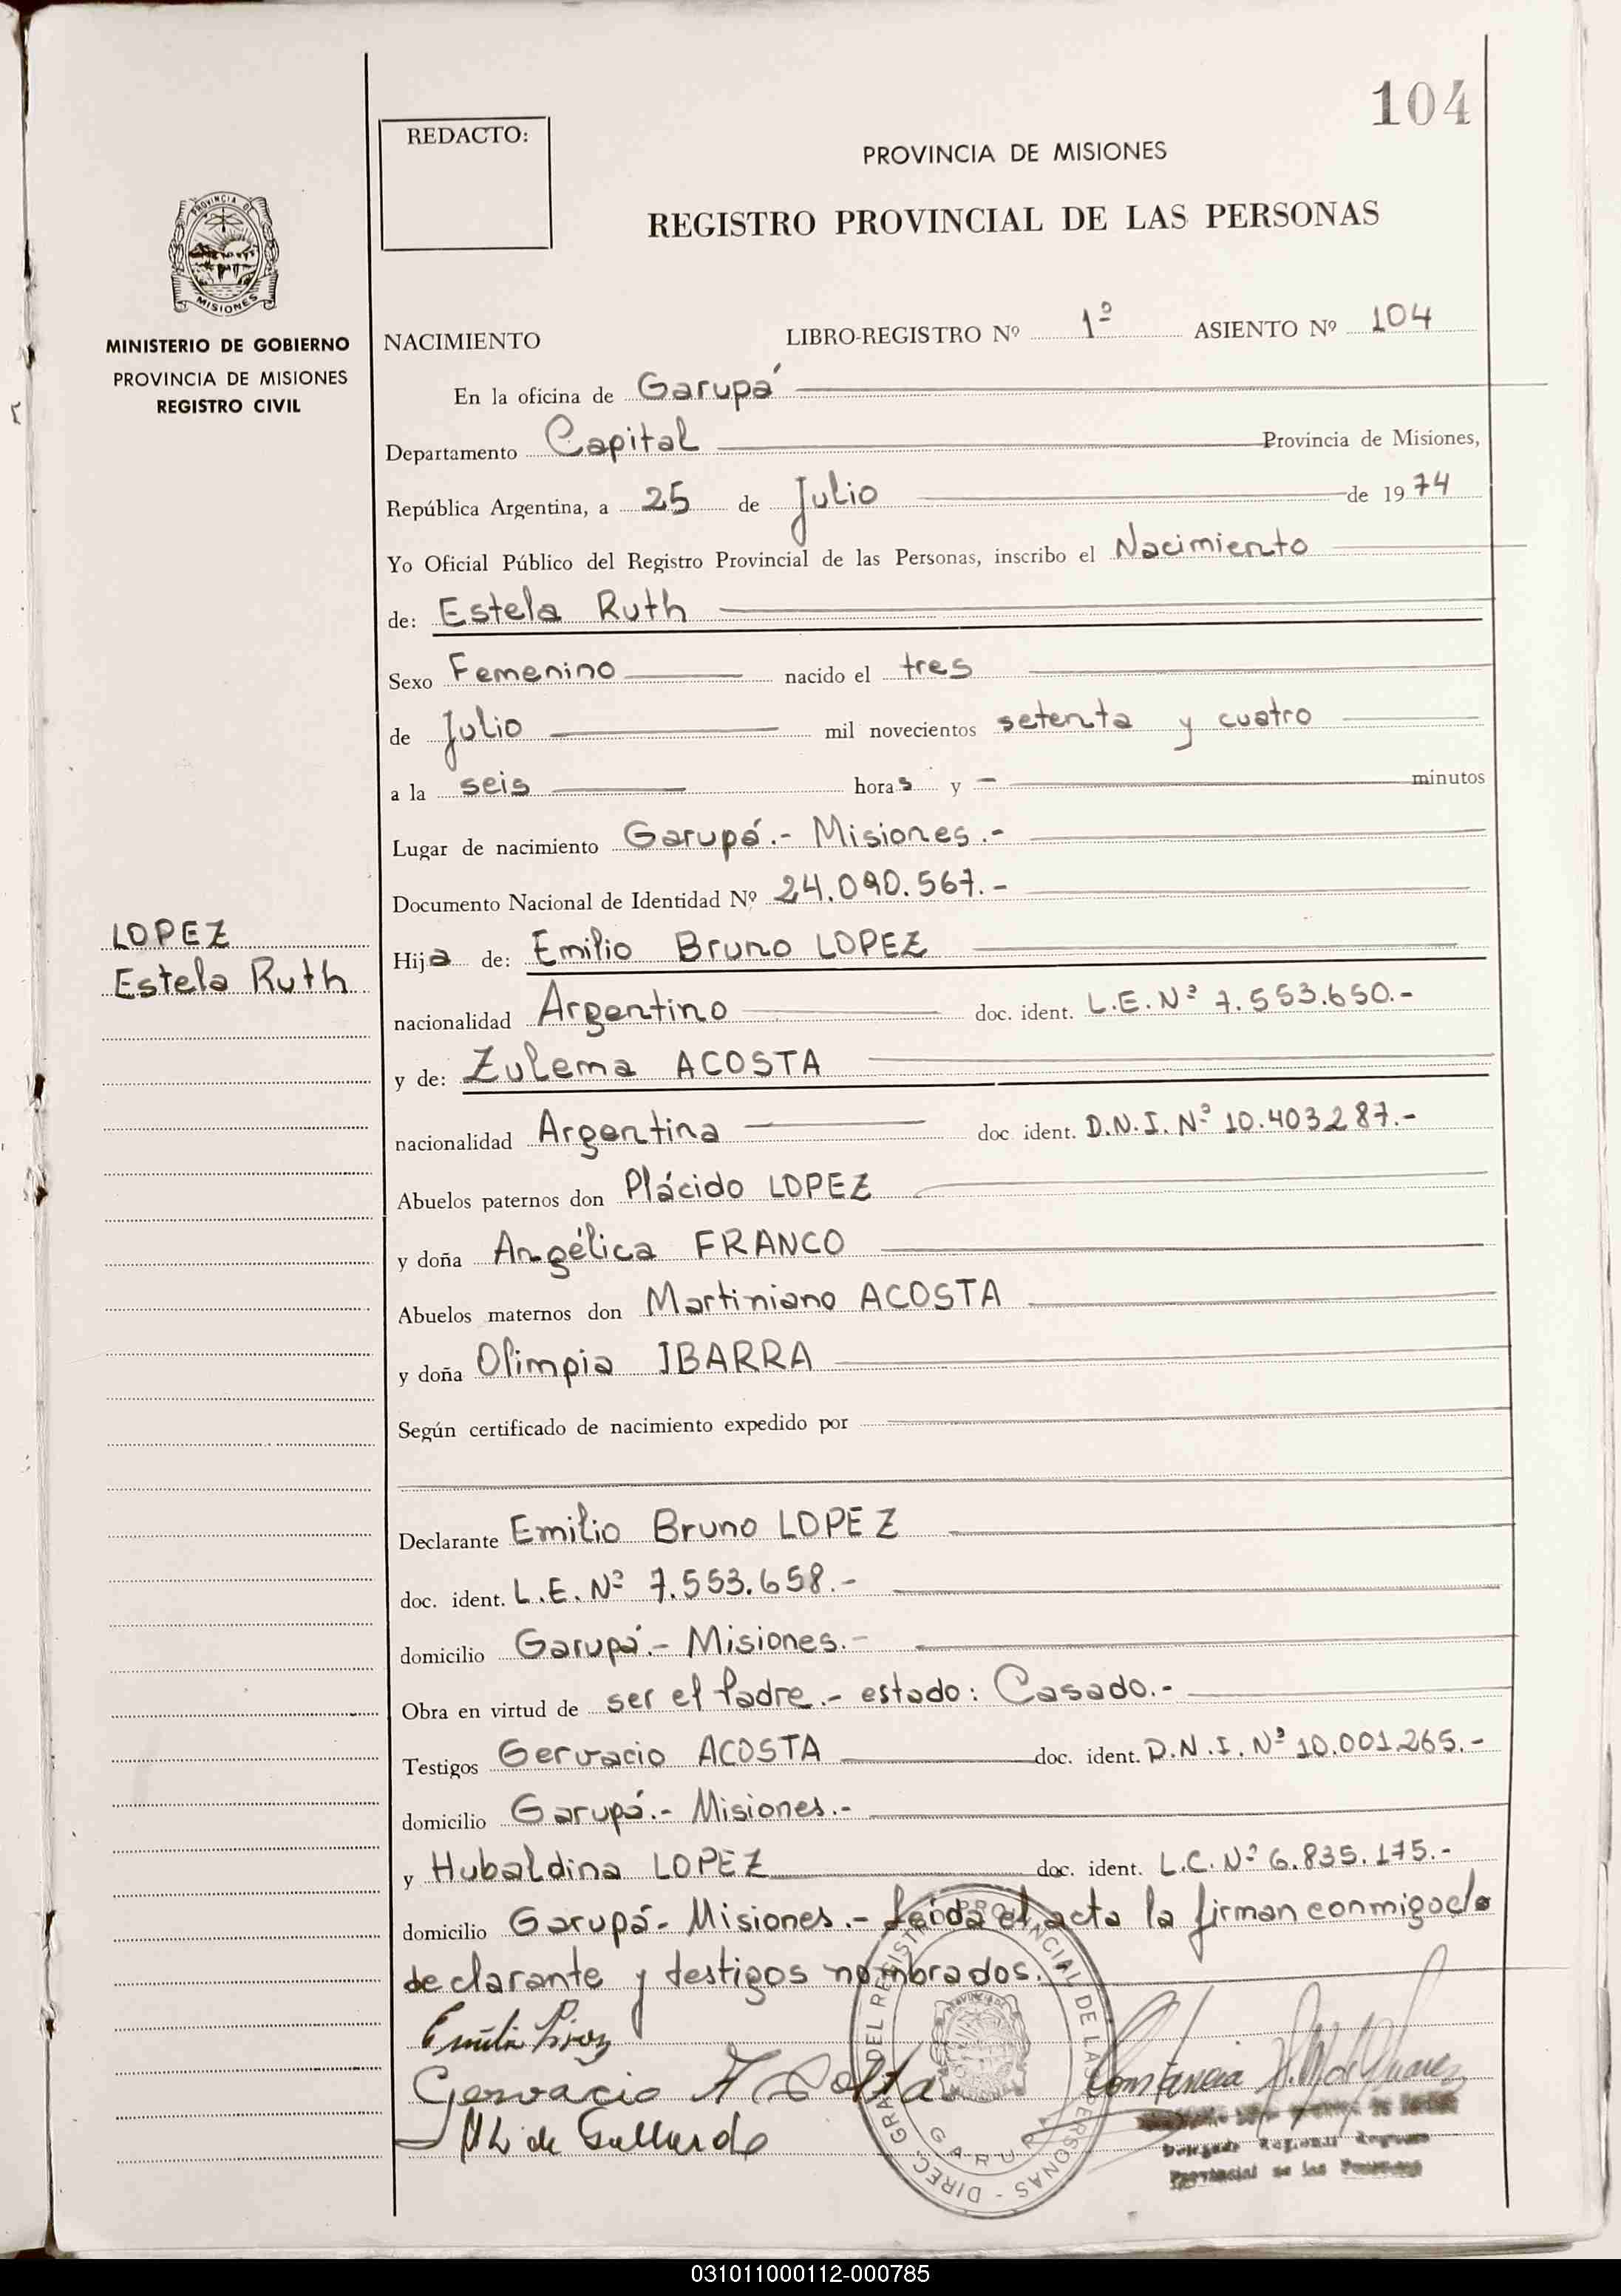 104
REDACTO:
PROVINCIA DE MISIONES
REGISTRO PROVINCIAL DE LAS PERSONAS
PROVINCIA DE
MISIONES
MINISTERIO DE GOBIERNO
PROVINCIA DE MISIONES
REGISTRO CIVIL
NACIMIENTO LIBRO-REGISTRO Nº 1º ASIENTO Nº 104
En la oficina de Garupá
Departamento Capital Provincia de Misiones,
República Argentina, a 25 de Julio de 1974
Yo Oficial Público del Registro Provincial de las Personas, inscribo el Nacimiento
de: Estela Ruth
Sexo Femenino nacido el tres
de Julio mil novecientos setenta y cuatro
a la seis horas y - minutos
Lugar de nacimiento Garupá.- Misiones.-
Documento Nacional de Identidad Nº 24.090.567.-
LOPEZ
Estela Ruth
Hija de: Emilio Bruno LOPEZ
nacionalidad Argentino doc. ident. L.E. Nº 7.553.650.-
y de: Zulema ACOSTA
nacionalidad Argentina doc. ident. D.N.I. Nº 10.403287.-
Abuelos paternos don Plácido LOPEZ
y doña Angélica FRANCO
Abuelos maternos don Martiniano ACOSTA
y doña Olimpia IBARRA
Según certificado de nacimiento expedido por
Declarante Emilio Bruno LOPEZ
doc. ident. L.E. Nº 7.553.658.-
domicilio Garupá.- Misiones.-
Obra en virtud de ser el Padre.- estado: Casado.-
Testigos Gervacio ACOSTA doc. ident. D.N.I. Nº 10.001.265.-
domicilio Garupá.- Misiones.-
y Hubaldina LOPEZ doc. ident. L.C. Nº 6.835.175.-
domicilio Garupá- Misiones.- Leída el acta la firman conmigo elo
declarante y testigos nombrados.
Gervacio Acosta
Constancia
DIREC. GRAL. DEL REGISTRO PROVINCIAL DE LAS PERSONAS -
GARUPA
Delegado Regional Registro
Provincial de las Personas
031011000112-000785